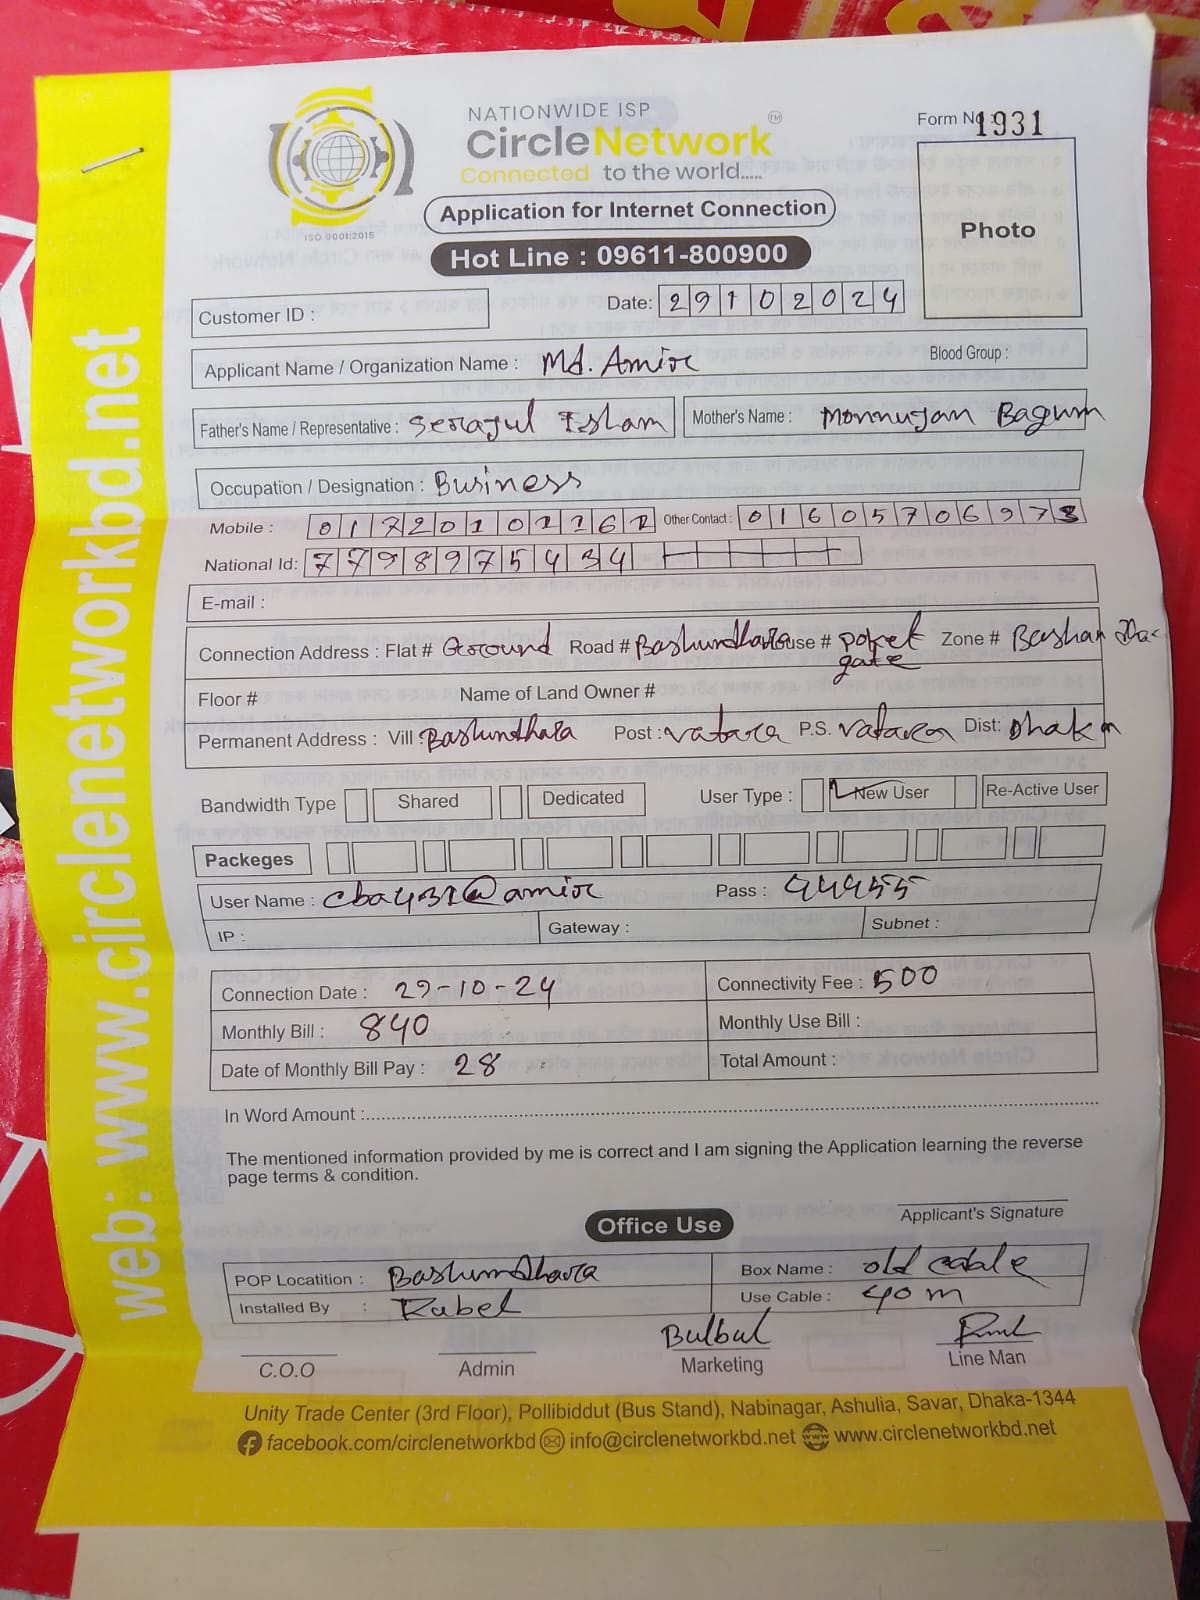 NATIONWIDE ISP
CircleNetwork™
Connected to the world.....
ISO 9001:2015
Form No: 1931
Photo
Application for Internet Connection
Hot Line : 09611-800900
Customer ID :
Date: 29102024
Applicant Name / Organization Name : Md. Amir
Blood Group :
Father's Name / Representative : Serajul Islam
Mother's Name : Monnujan Bagum
Occupation / Designation : Business
Mobile :
Other Contact :
National Id: 7798975434
E-mail :
Connection Address : Flat # Ground Road # Bashundhara House # poket gate Zone #
Floor # Name of Land Owner #
Permanent Address : Vill : Bashundhara Post : vatara P.S. vatara Dist: Dhaka
Bandwidth Type Shared Dedicated User Type : New User Re-Active User
Packeges
User Name : cba431@amir Pass : 44455
IP : Gateway : Subnet :
Connection Date : 29-10-24 Connectivity Fee : 500
Monthly Bill : 840 Monthly Use Bill :
Date of Monthly Bill Pay : 28 Total Amount :
In Word Amount :
The mentioned information provided by me is correct and I am signing the Application learning the reverse
page terms & condition.
Applicant's Signature
Office Use
POP Locatition : Bashundhara Box Name : old cable
Installed By : Rubel Use Cable : 40 m
Bulbul
C.O.O Admin Marketing Line Man
Unity Trade Center (3rd Floor), Pollibiddut (Bus Stand), Nabinagar, Ashulia, Savar, Dhaka-1344
facebook.com/circlenetworkbd info@circlenetworkbd.net www.circlenetworkbd.net
web: www.circlenetworkbd.net